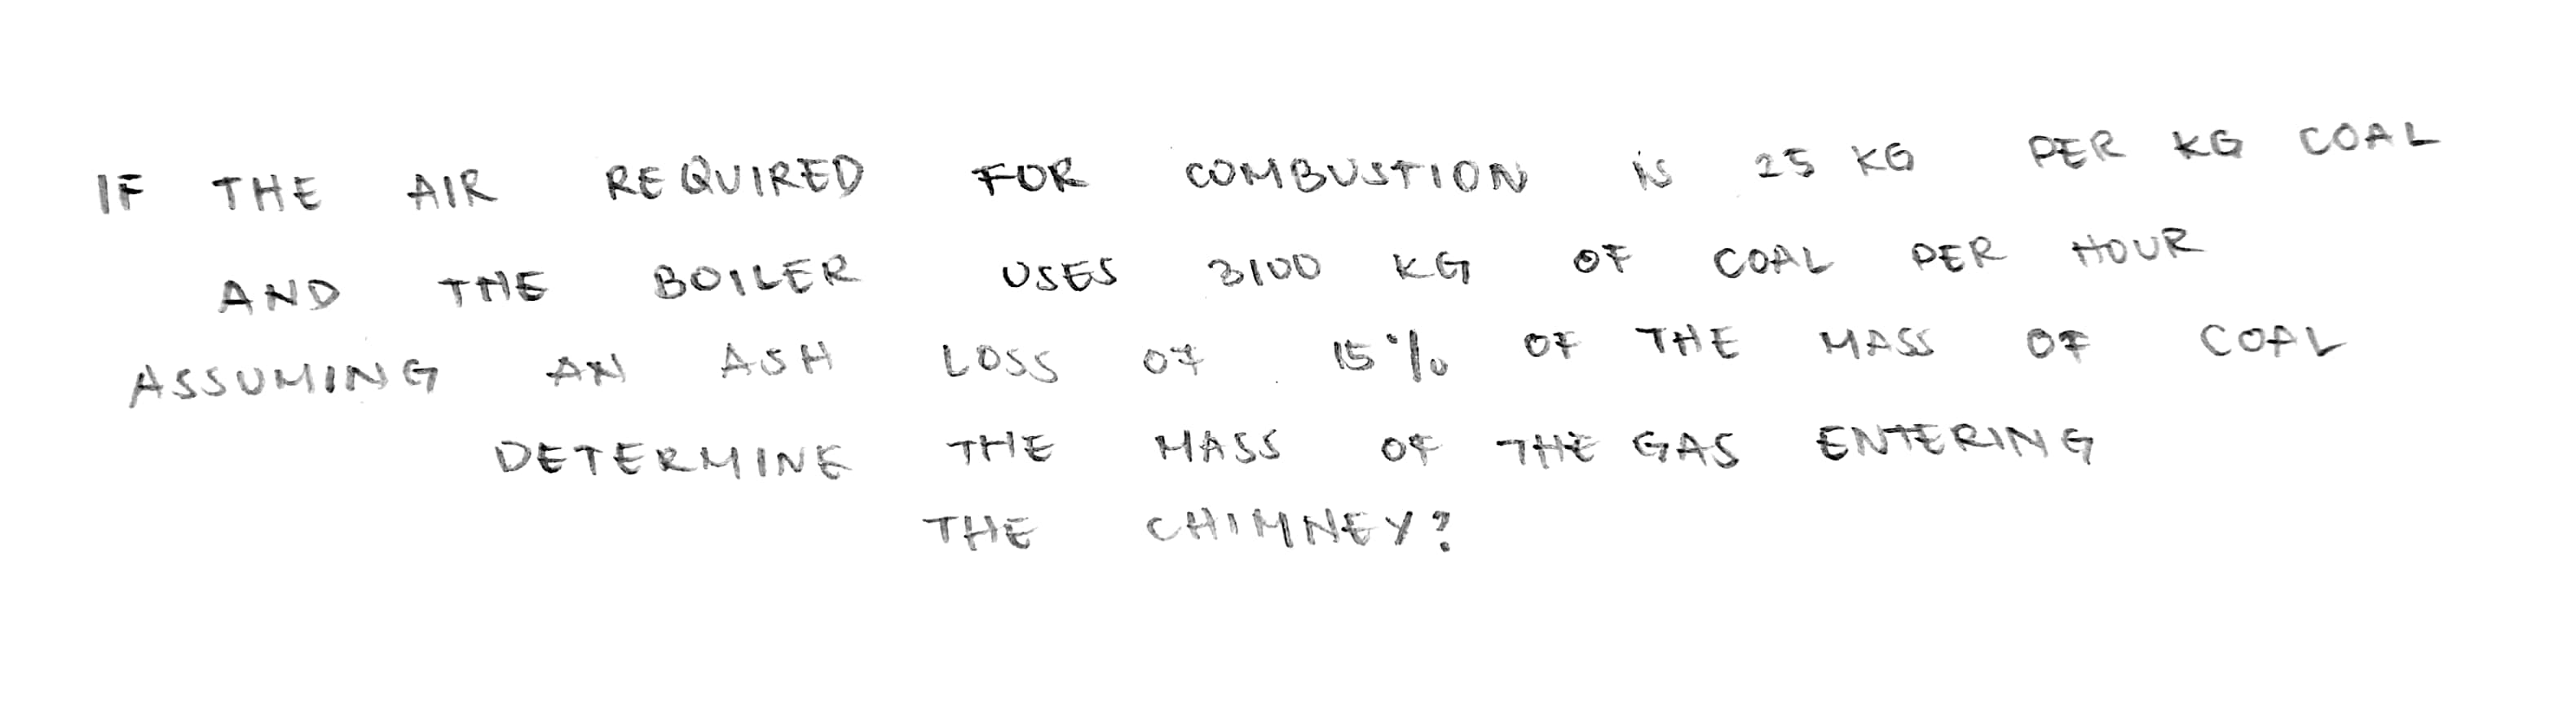 IF THE AIR REQUIRED FOR COMBUSTION IS 25 KG PER KG COAL
AND THE BOILER USES 3100 KG OF COAL PER HOUR
ASSUMING AN ASH LOSS OF 15% OF THE MASS OF COAL
DETERMINE THE MASS OF THE GAS ENTERING
THE CHIMNEY?